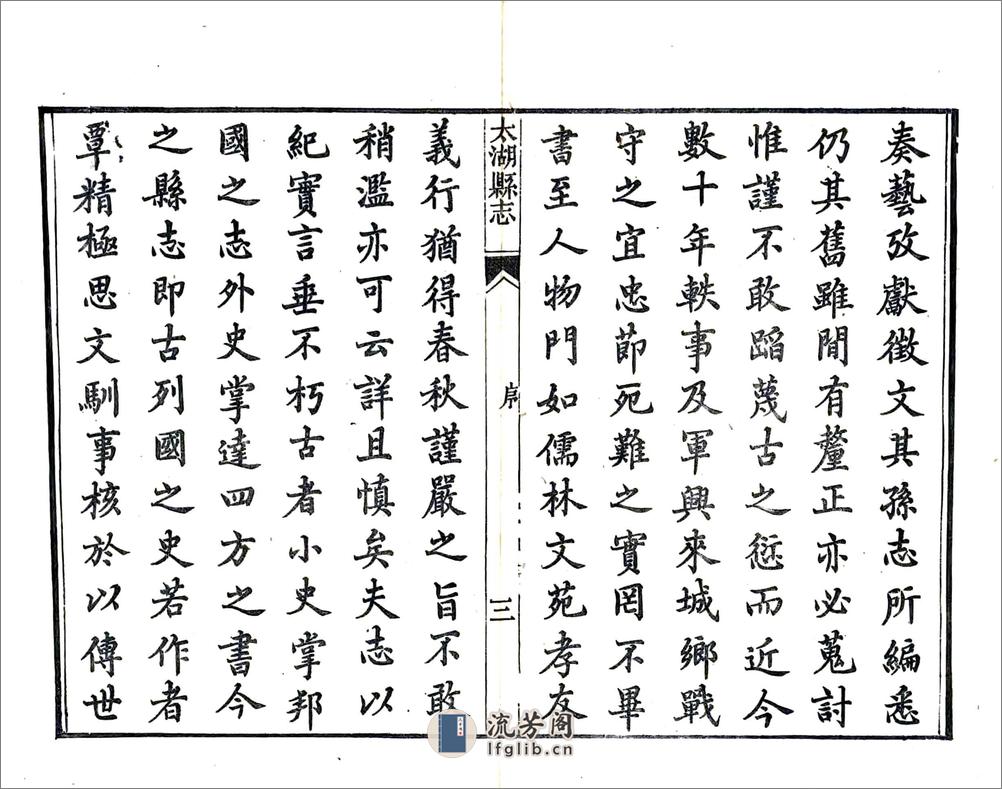 奏藝攷獻徵文其孫志所編悉
仍其舊雖間有釐正亦必蒐討
惟謹不敢蹈蔑古之愆而近今
數十年軼事及軍興來城鄉戰
守之宜忠節死難之實罔不畢
書至人物門如儒林文苑孝友
太湖縣志
序
三
義行猶得春秋謹嚴之旨不敢
稍濫亦可云詳且慎矣夫志以
紀實言垂不朽古者小史掌邦
國之志外史掌達四方之書今
之縣志即古列國之史若作者
覃精極思文馴事核於以傳世
流芳阁
lfglib.cn